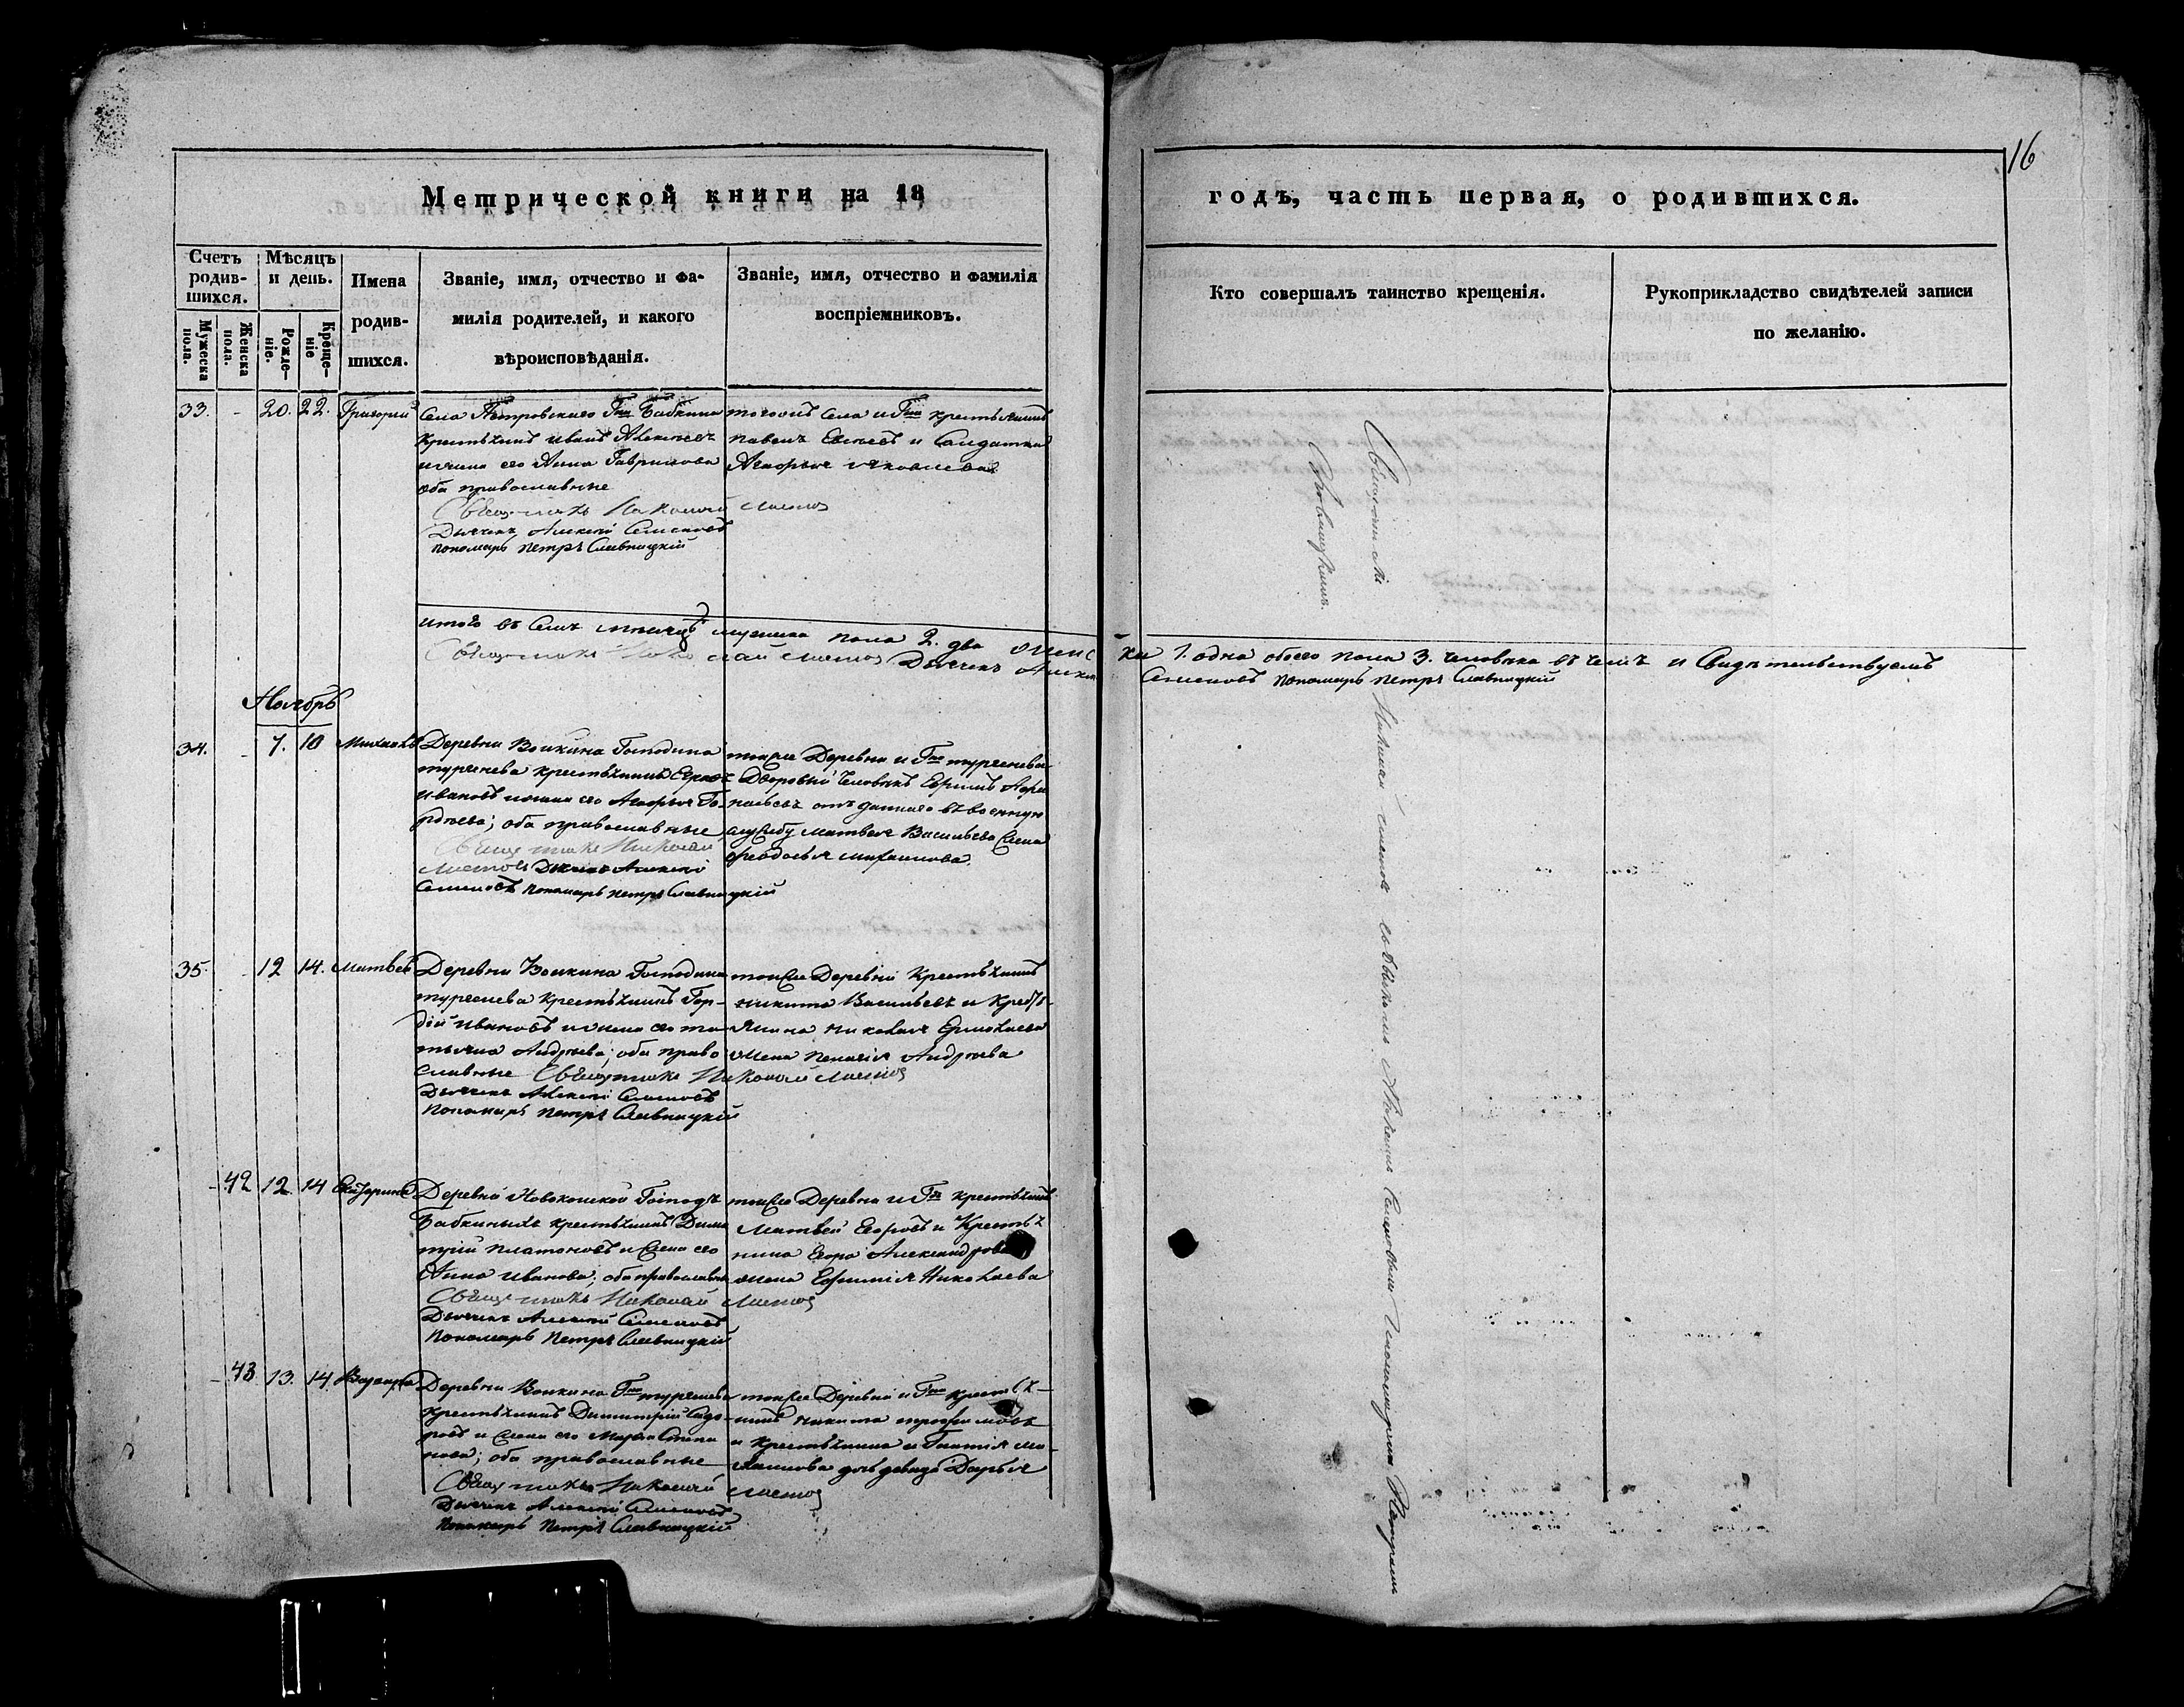 16
Метрической книги на 18
годъ, часть первая, о родившихся.
Счетъ родив-шихся.
Мужеска пола.
Женска пола.
Мѣсяцъ и день.
Рожде-ніе.
Креще-ніе
Имена родив-шихся.
Званіе, имя, отчество и фа-
милія родителей, и какого
вѣроисповѣданія.
Званіе, имя, отчество и фамилія
воспріемниковъ.
Кто совершалъ таинство крещенія.
Рукоприкладство свидѣтелей записи
по желанію.
33. - 20. 22. Григорій
Села Петровскаго Гна Бабкина
крестьянинъ Иванъ Алексѣевъ
и жена его Анна Гаврилова
оба православные
Священникъ Николай
Дьячекъ Алексѣй Семеновъ
пономарь Петръ Славницкій
тогожъ села и Гна крестьянинъ
Павелъ и Солдатка
Агафья Яковлева
Священникъ
итого въ семъ мѣсяцѣ мужеска пола 2. два женс
ка 1. одна обоего пола 3. человѣка въ чемъ и свидѣтельствуемъ
Священникъ Николай Дьячекъ Алексѣй
Семеновъ пономарь Петръ Славницкій
Ноябрь
34. - 7. 10 Михаилъ
Деревни Воикина Господина
тургенева крестьянинъ Сергѣй
Ивановъ и жена его Агафья Го-
рдѣева; оба православные
Священникъ Николай
Дьячекъ Алексѣй
Семеновъ пономарь Петръ Славницкій
тойже Деревни и Гна тургенева
Дворовый человѣкъ Ефимъ Афа
насьевъ отъданнаго въ военную
службу матвея Васильева жена
феодосья михаилова.
35. - 12 14. Матвей
Деревни Воикина Господина
тургенева крестьянинъ Гор-
дій Ивановъ и жена его та-
тьяна Андрѣева; оба право
славные Священникъ Николай
Дьячекъ Алексѣй Семеновъ
Пономарь Петръ Славницкій
тойже Деревни Крестьянинъ
никита Васильевъ и Кресть-
янина николая Ермолаева
жена пелагія Андрѣева
- 42 12 14 Екатерина
Деревни Господъ
Бабкиныхъ крестьянинъ Дими
трій платоновъ и жена его
Анна Иванова; оба православны
Священникъ Николай
Дьячекъ Алексѣй Семеновъ
Пономарь Петръ Славницкій
тойже Деревни и Гдъ крестьянинъ
Матвей Егоровъ и Кресть-
нина Егора Александрова
жена Ефимія Николаева
- 43. 13. 14. Варвара
Деревни Воикина Гна тургенева
крестьянинъ Димитрій Сидо-
ровъ и жена его Марфа Степа
нова; оба православные
Священникъ Николай
Дьячекъ Алексѣй Семеновъ
Пономарь Петръ Славницкій
тойже Деревни и Гна крестья-
нинъ никита трофимовъ
и крестьянина
дочь девица Дарья
Славницкимъ.